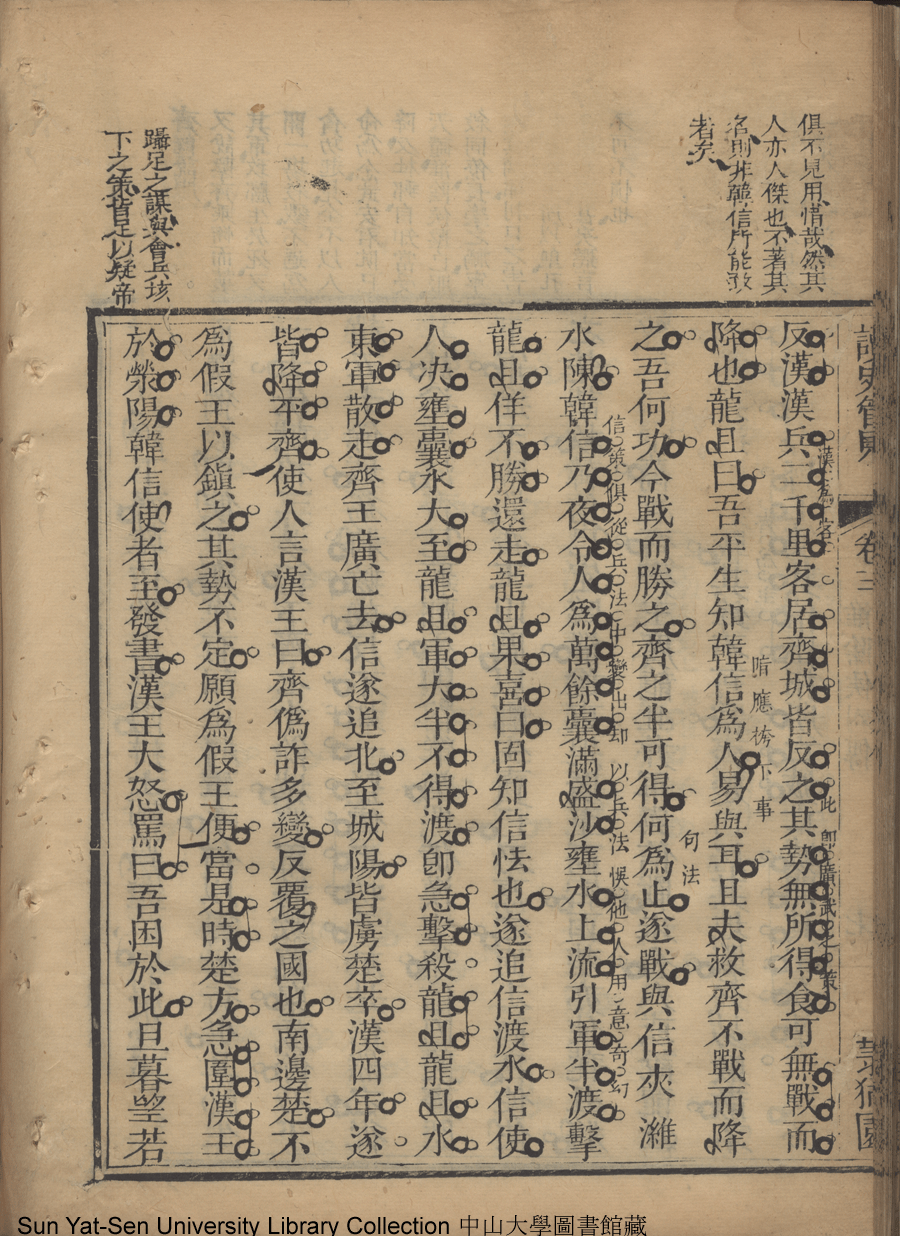 俱不見用惜哉然其
人亦人傑也不著其
名則非韓信所能敵
者矣
躡足之謀與會兵垓
下之策皆足以疑帝
卷三
反漢漢兵二千里客居齊城皆反之其勢無所得食可無戰而
漢爲客
此卽廣武之策
降也龍且曰吾平生知韓信爲人易與耳且夫救齊不戰而降
暗應袴下事
之吾何功今戰而勝之齊之半可得何爲止遂戰與信夾濰
句法
水陳韓信乃夜令人爲萬餘囊滿盛沙壅水上流引軍半渡擊
信策俱從兵法中變出却以兵法悞他人用意奇幻
龍且佯不勝還走龍且果喜曰固知信怯也遂追信渡水信使
人决壅囊水大至龍且軍大半不得渡卽急擊殺龍且龍且水
東軍散走齊王廣亡去信遂追北至城陽皆虜楚卒漢四年遂
皆降平齊使人言漢王曰齊僞詐多變反覆之國也南邊楚不
爲假王以鎮之其勢不定願爲假王便當是時楚方急圍漢王
於滎陽韓信使者至發書漢王大怒罵曰吾困於此旦暮望若
Sun Yat-Sen University Library Collection 中山大學圖書館藏